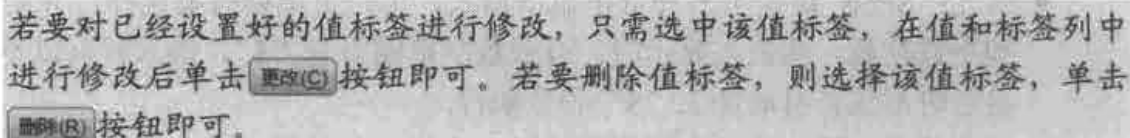 若要对已经设置好的值标签进行修改，只需选中该值标签，在值和标签列中
进行修改后单击更改(C)按钮即可。若要删除值标签，则选择该值标签，单击
删除(R)按钮即可。